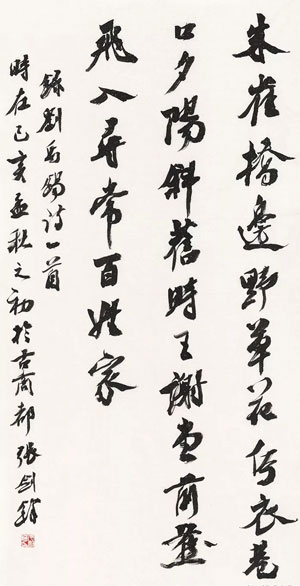 朱雀橋邊野草花烏衣巷
口夕陽斜舊時王謝堂前燕
飛入尋常百姓家
錄劉禹錫詩一首
時在己亥孟秋之初於古商都張劍